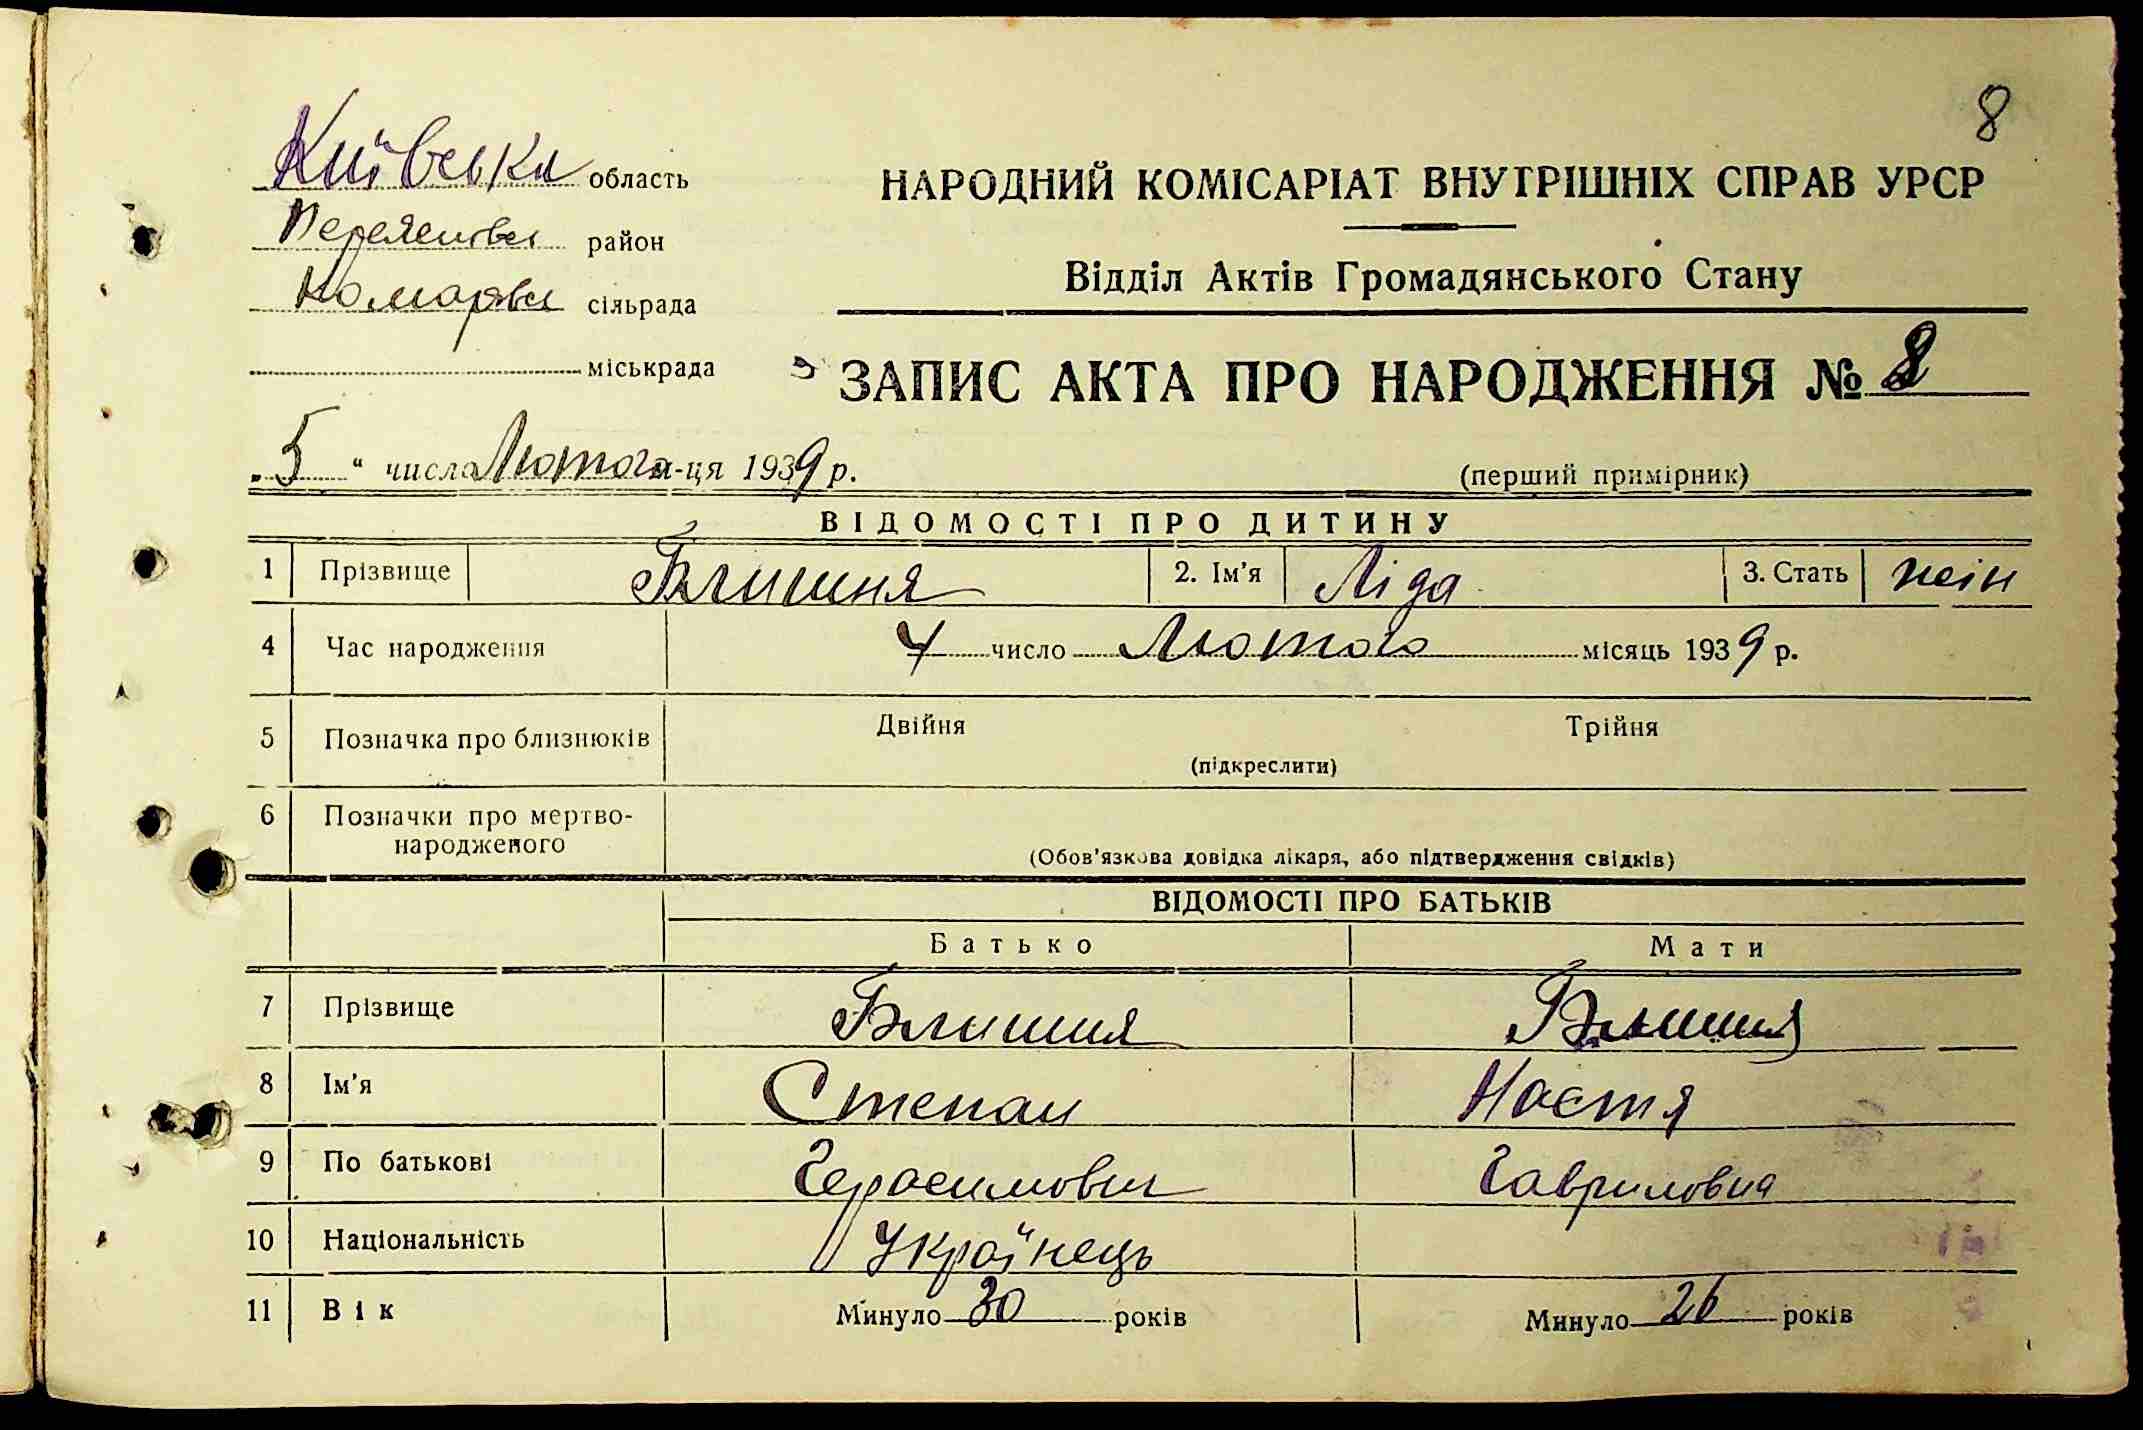 8
Київська область
НАРОДНИЙ КОМІСАРІАТ ВНУТРІШНІХ СПРАВ УРСР
район
Відділ Актів Громадянського Стану
сільрада
міськрада
ЗАПИС АКТА ПРО НАРОДЖЕННЯ № 8
„5“ числа Лютого м-ця 1939 р.
(перший примірник)
ВІДОМОСТІ ПРО ДИТИНУ
1 Прізвище Блишня 2. Ім'я Ліда 3. Стать жін
4 Час народження 4 число Лютого місяць 1939 р.
5 Позначка про близнюків Двійня Трійня
(підкреслити)
6 Позначки про мертво-
народженого
(Обов'язкова довідка лікаря, або підтвердження свідків)
ВІДОМОСТІ ПРО БАТЬКІВ
Батько Мати
7 Прізвище Блишня Блишня
8 Ім'я Степан Настя
9 По батькові Герасимович Гавриловна
10 Національність Українець
11 Вік Минуло 30 років Минуло 26 років